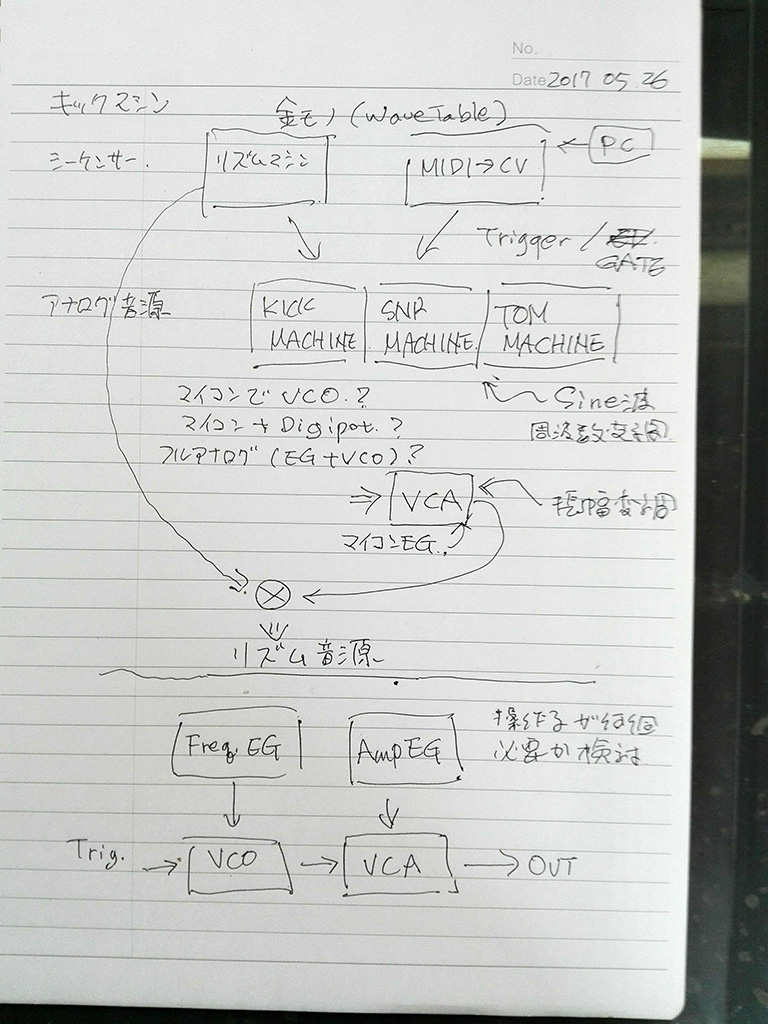 No.
Date 2017 05 26
キックマシン
金モノ (WaveTable)
シーケンサー.
リズムマシン
MIDI→CV
PC
Trigger /
GATE
アナログ音源
KICK
MACHINE
SNR
MACHINE
TOM
MACHINE
マイコンで VCO.?
Sine波
マイコン + Digipot.?
周波数変調
フルアナログ (EG+VCO)?
VCA
振幅変調
マイコンEG.
リズム音源
Freq. EG
AmpEG
操作子が何個
必要か検討
Trig.
VCO
VCA
OUT